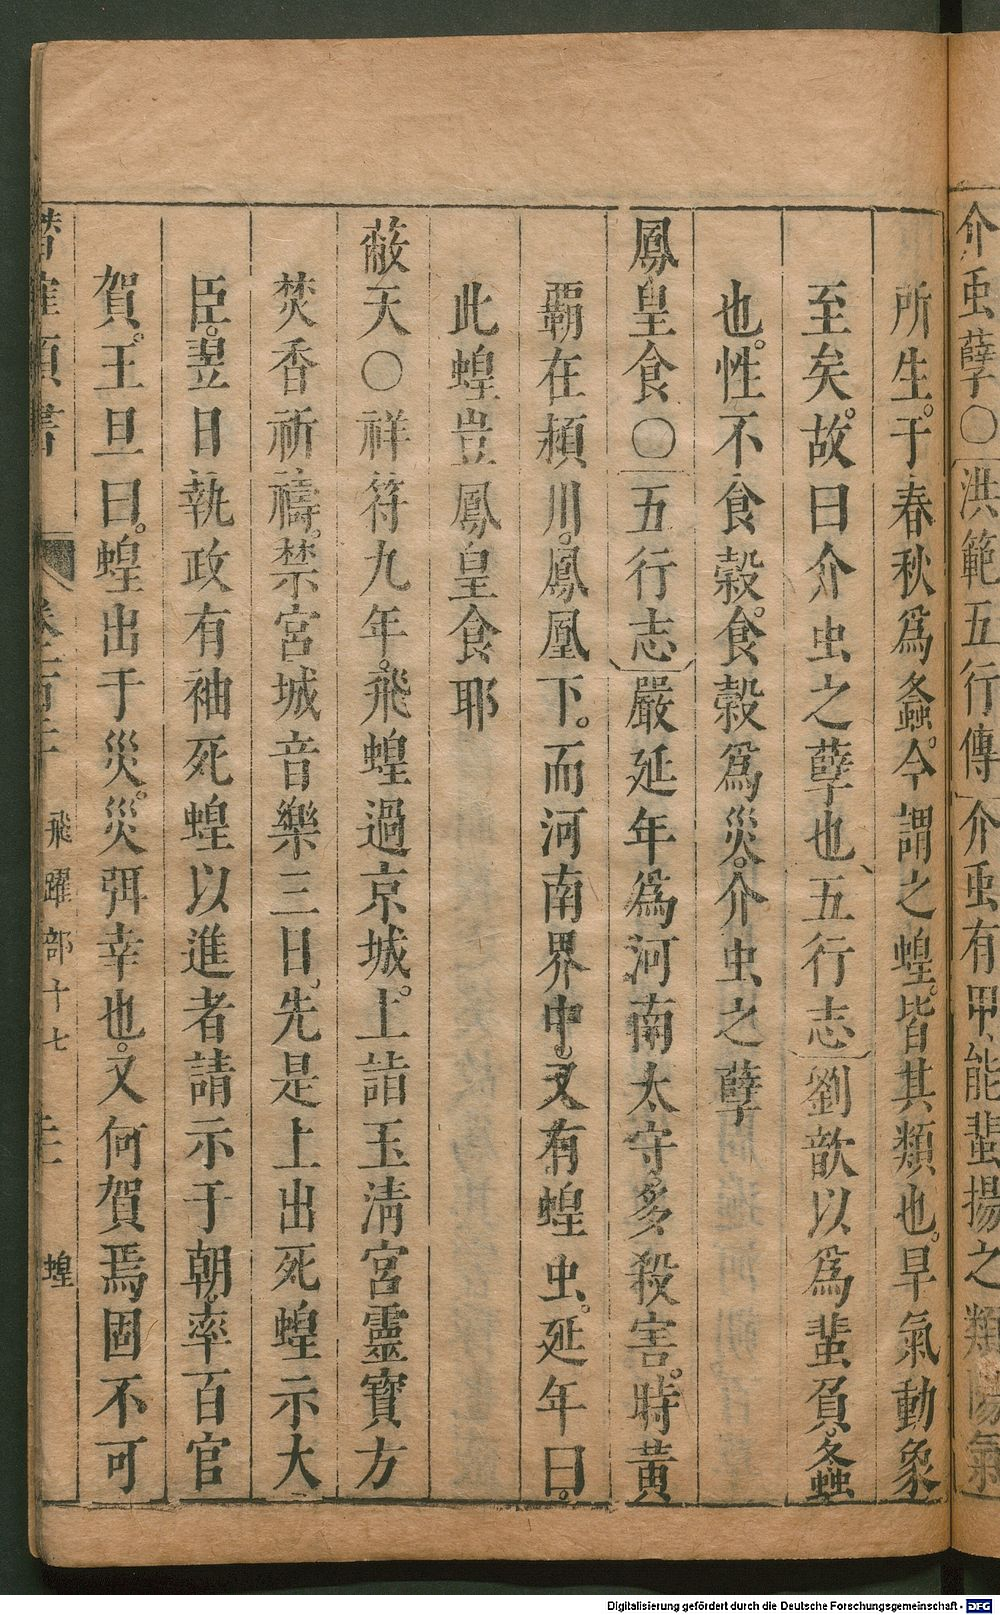 介虫孽〇洪範五行傳介虫有甲、能蜚揚之類陽氣
所生。于春秋爲螽。今謂之蝗。皆其類也。旱氣動象
至矣。故曰介虫之孽也、五行志劉歆以爲蜚負螽
也。性不食穀。食穀爲災。介虫之孽
鳳皇食〇五行志嚴延年爲河南太守。多殺害。時黄
霸在潁川。鳳凰下。而河南界中。又有蝗虫。延年曰。
此蝗豈鳳皇食耶
蔽天〇祥符九年。飛蝗過京城。上詣玉清宮靈寶方
焚香祈禱。禁宮城音樂三日。先是上出死蝗示大
臣。翌日執政有袖死蝗以進者請示于朝。率百官
賀。王旦曰。蝗出于災。災弭幸也。又何賀焉固不可
潛確類書 飛躍部十七 蝗
Digitalisierung gefördert durch die Deutsche Forschungsgemeinschaft - DFG